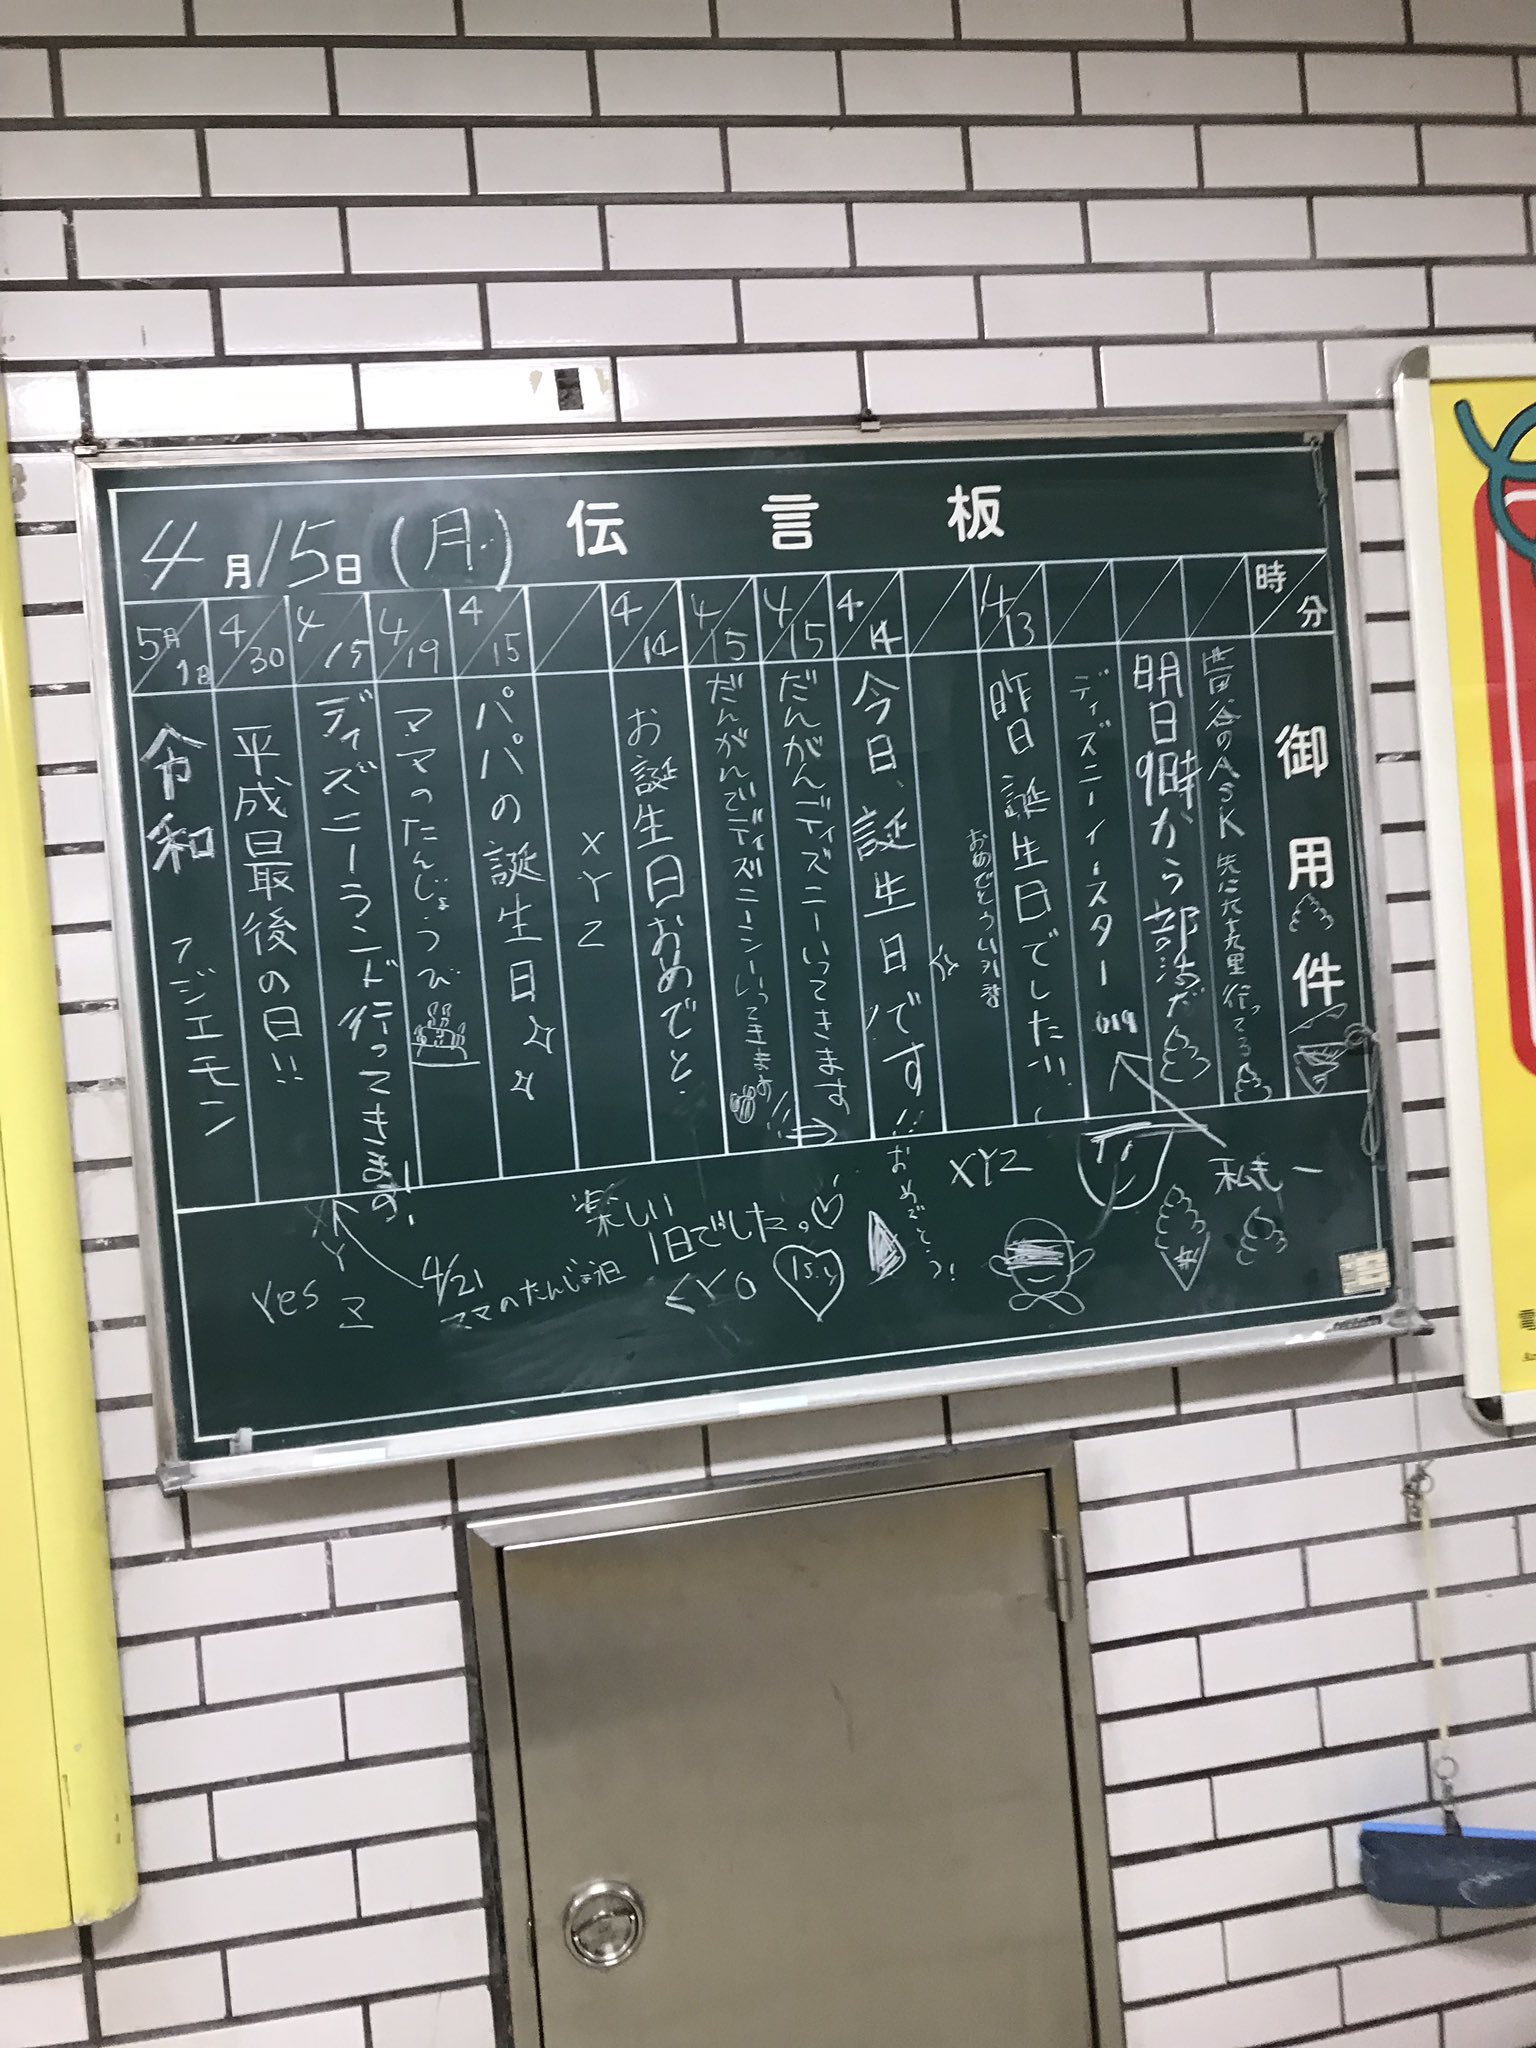 伝言板
4月15日(月)
時分
御用件
世田谷のASK 先に九十九里行ってる
明日9時から部活だ
ディズニーイースター
4/13
昨日誕生日でした!!
4/14
今日、誕生日です!!!おめでとう!
4/15
だんがんディズニーいってきます
4/15
だんがんでディズニーシーいってきます
4/14
お誕生日おめでと、
XYZ
4/15
パパの誕生日
4/19
ママのたんじょうび
4/15
ディズニーランド行ってきます!
4/30
平成最後の日!!
5月1日
令和 アジエモン
私も一
XYZ
楽しい
1日でした。
4/21
ママのたんじょう日
XYZ
Yes